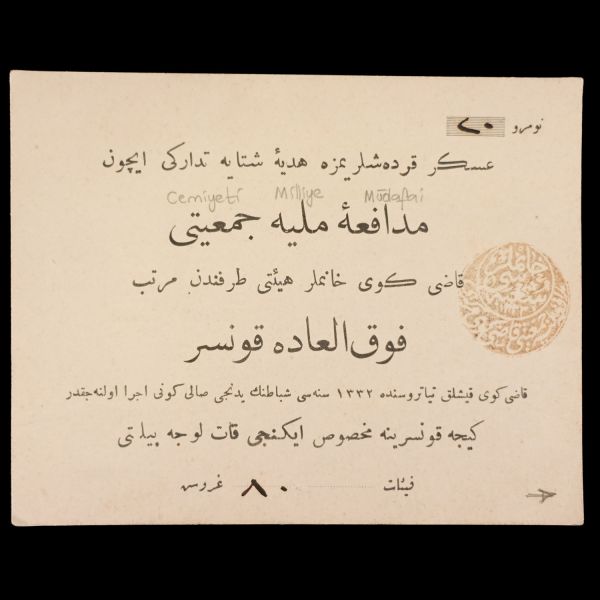 نومرو ٢٠
عسكر قرده‌شلريمزه هديۀ شتايه تداركى ايچون
Cemiyeti Milliye Müdafai
مدافعۀ مليه جمعيتى
قاضى كوى خانملر هيئتى طرفندن مرتب
فوق العاده قونسر
قاضى كوى قيشلق تياتروسنده ١٣٣٢ سنه‌سى شباطنك يدنجى صالى كونى اجرا اولنه‌جقدر
كيجه قونسرينه مخصوص ايكنجى قات لوجه بيلتى
فيئات ٨٠ غروس